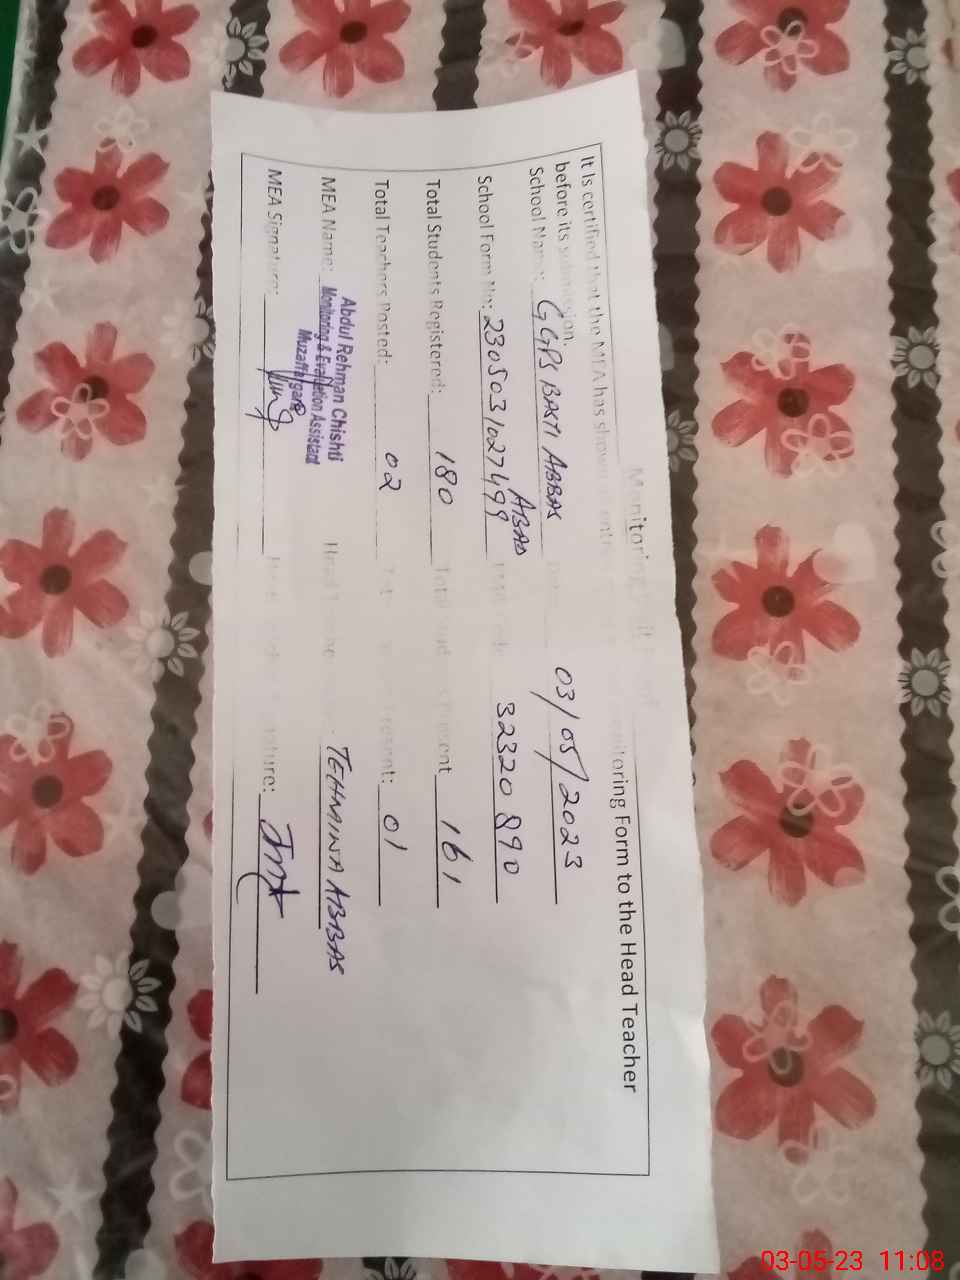 Monitoring
It Is certified that the MEA has shown entire Monitoring Form to the Head Teacher
before its submission.
School Name: GGPS BASTI ABBAS ABAD 03/05/2023
School Form No: 2305031027499 32320890
Total Students Registered: 180 Total present 161
Total Teachers Posted: 02 present: 01
MEA Name: Abdul Rehman Chishti
Monitoring & Evaluation Assistant
Muzaffargarh
TEHMINA ABBAS
MEA Signature: Head
03-05-23 11:08